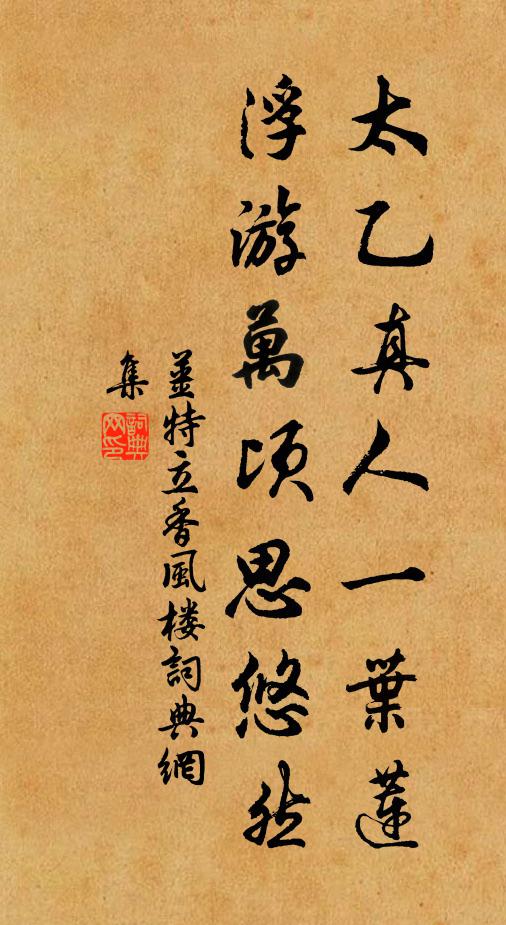 太乙真人一葉蓮
浮游萬頃思悠然
薑特立香風楼詞典網
集
詞典
网印